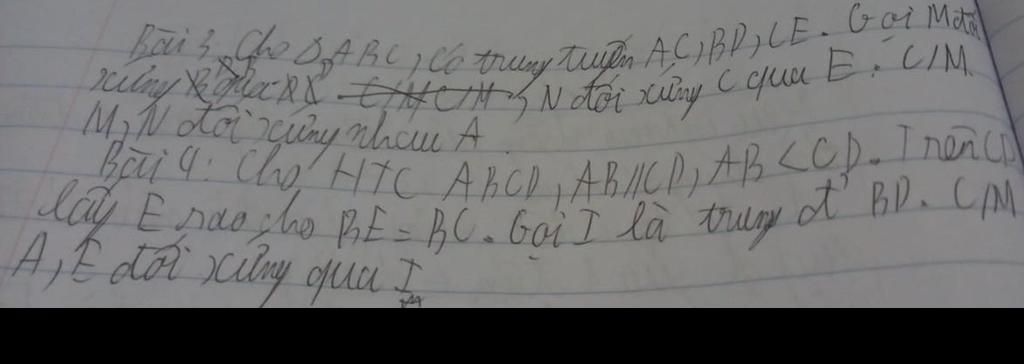 Bài 3. Cho Δ ABC, có trung tuyến AC, BD, CE. Gọi M đối
xứng B qua, N đối xứng C qua E. C/M
M, N đối xứng nhau A
Bài 4: Cho HTC ABCD, AB//CD, AB < CD. Trên CD
lấy E sao cho BE = BC. Gọi I là trung đ' BD. C/M
A, E đối xứng qua I